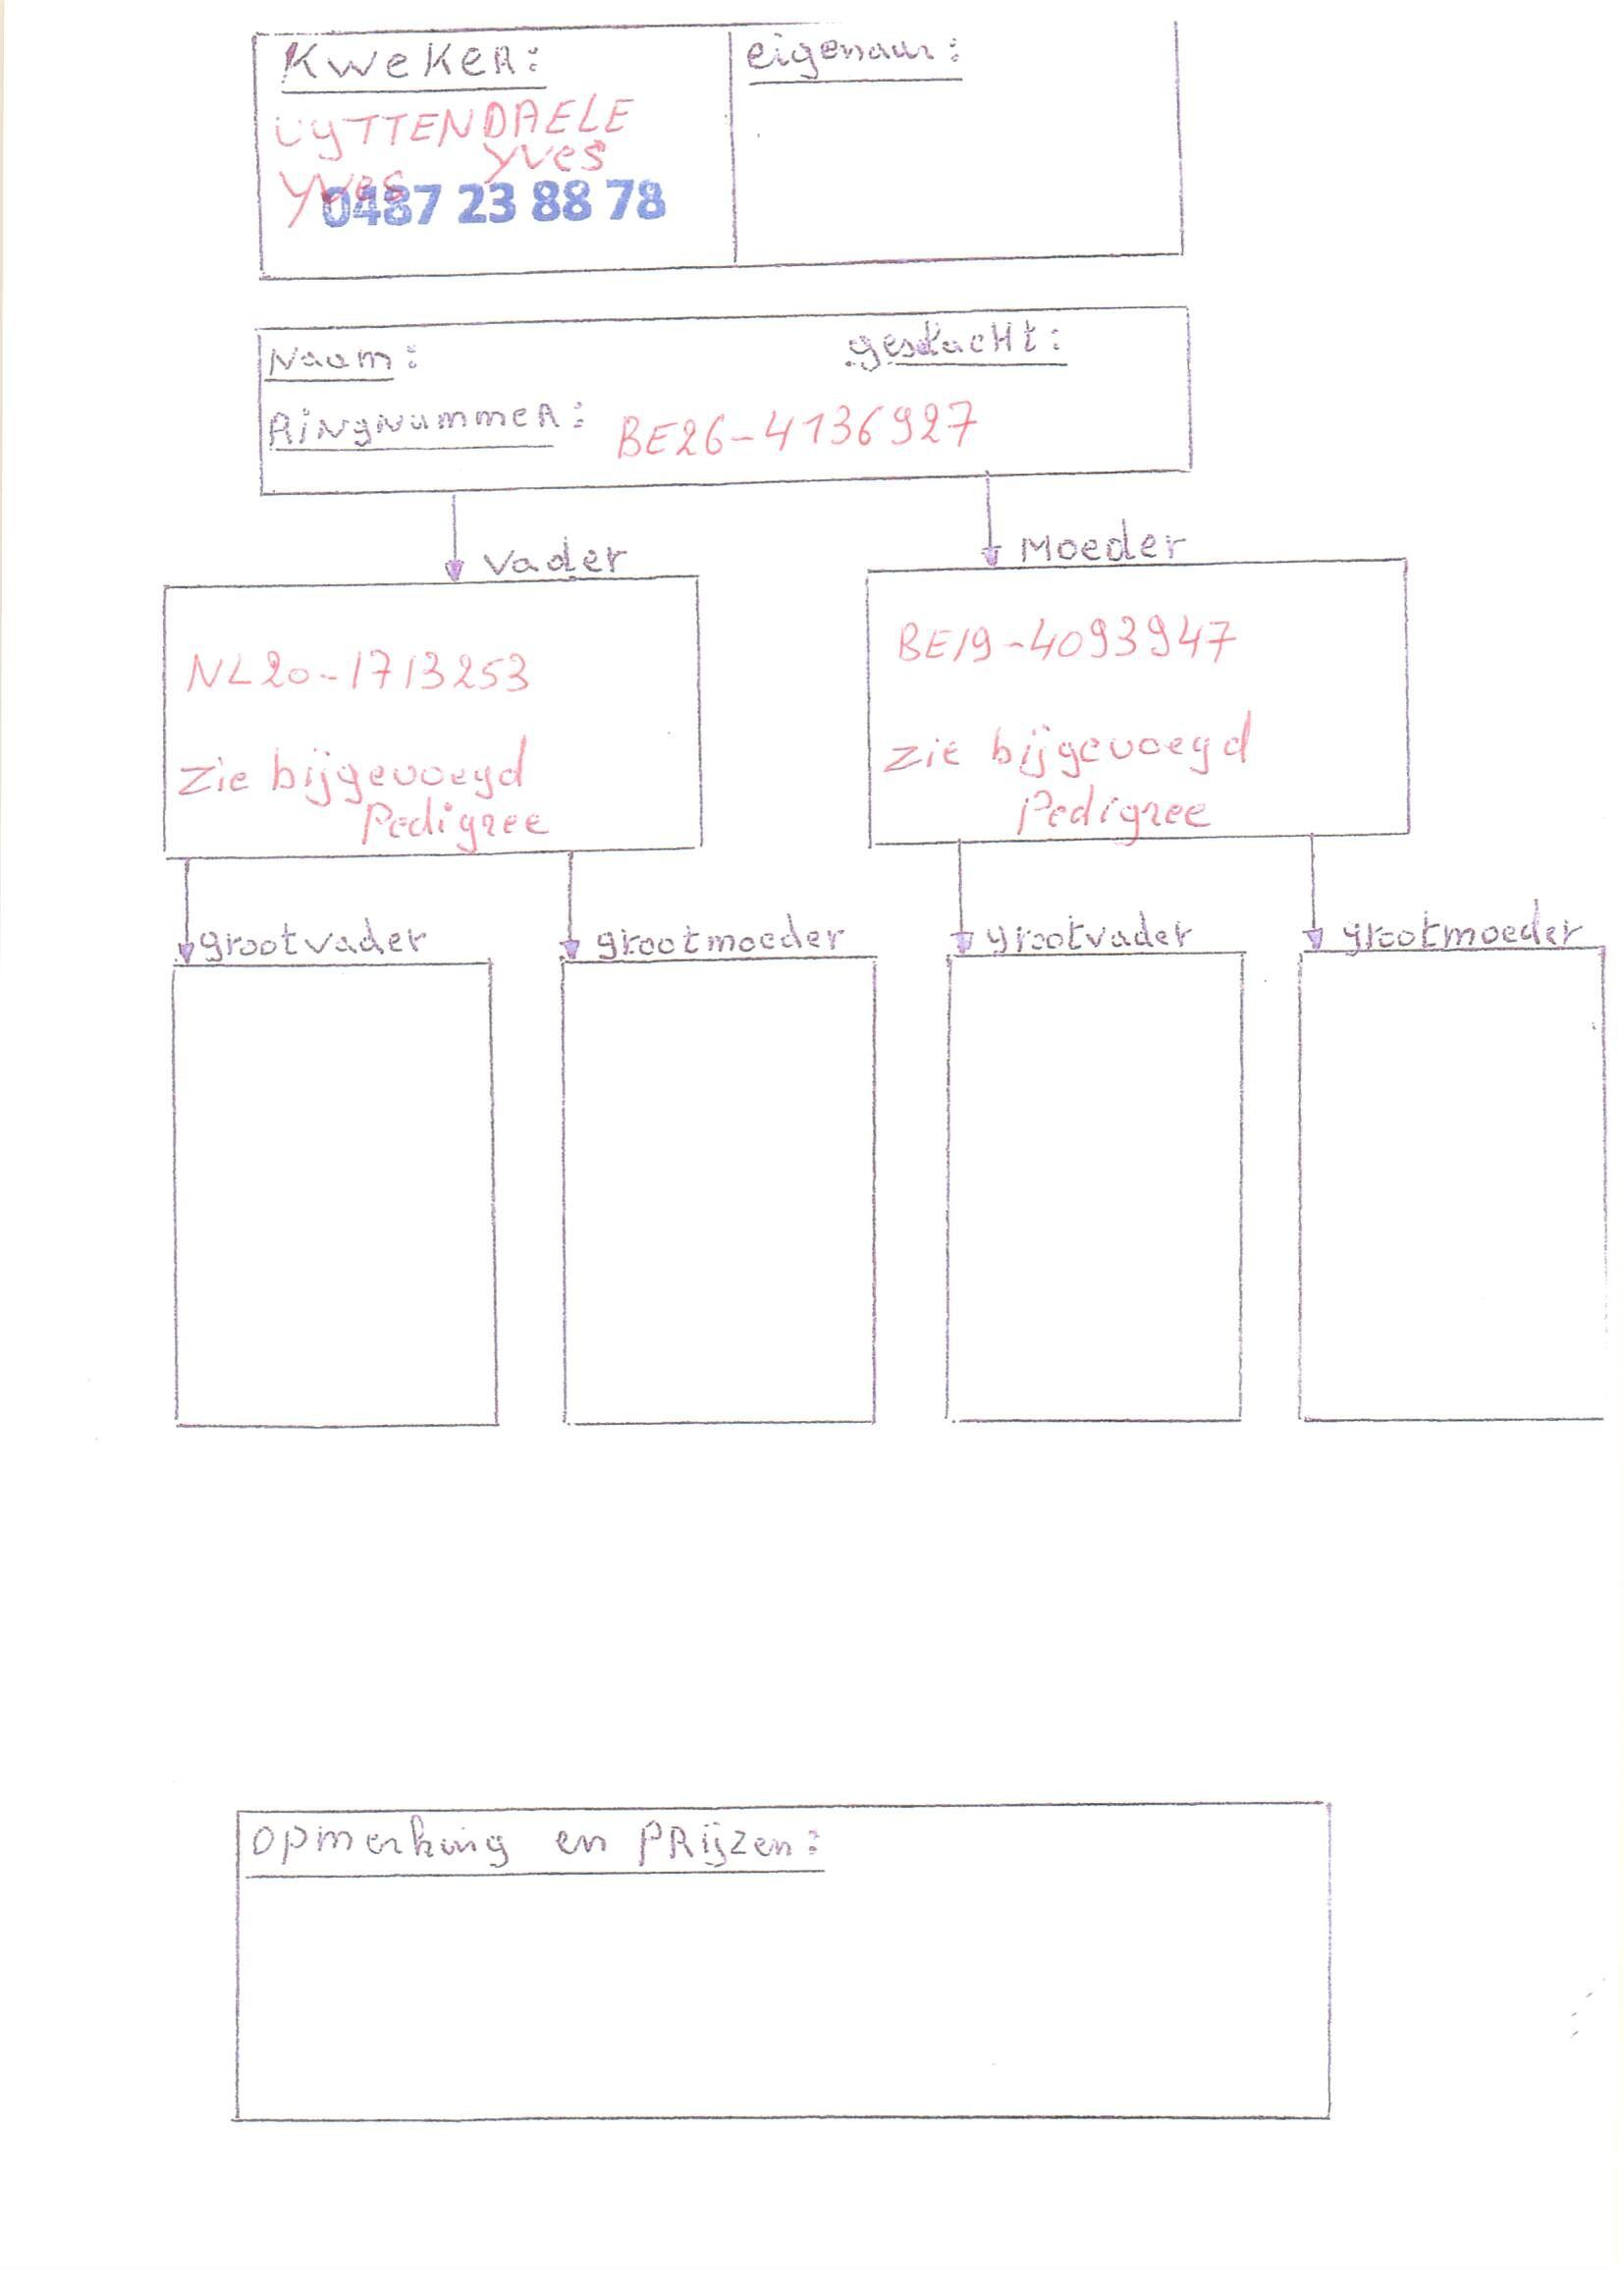 KWeKeR:
eigenaar:
UYTTENDAELE
Yves
Yves
0487 23 88 78
Naam:
geslacht:
Ringnummer:
BE26-4136927
Vader
Moeder
NL20-1713253
zie bijgevoegd
Pedigree
BE19-4093947
zie bijgevoegd
Pedigree
grootvader
grootmoeder
grootvader
grootmoeder
opmerking en PRijzen: